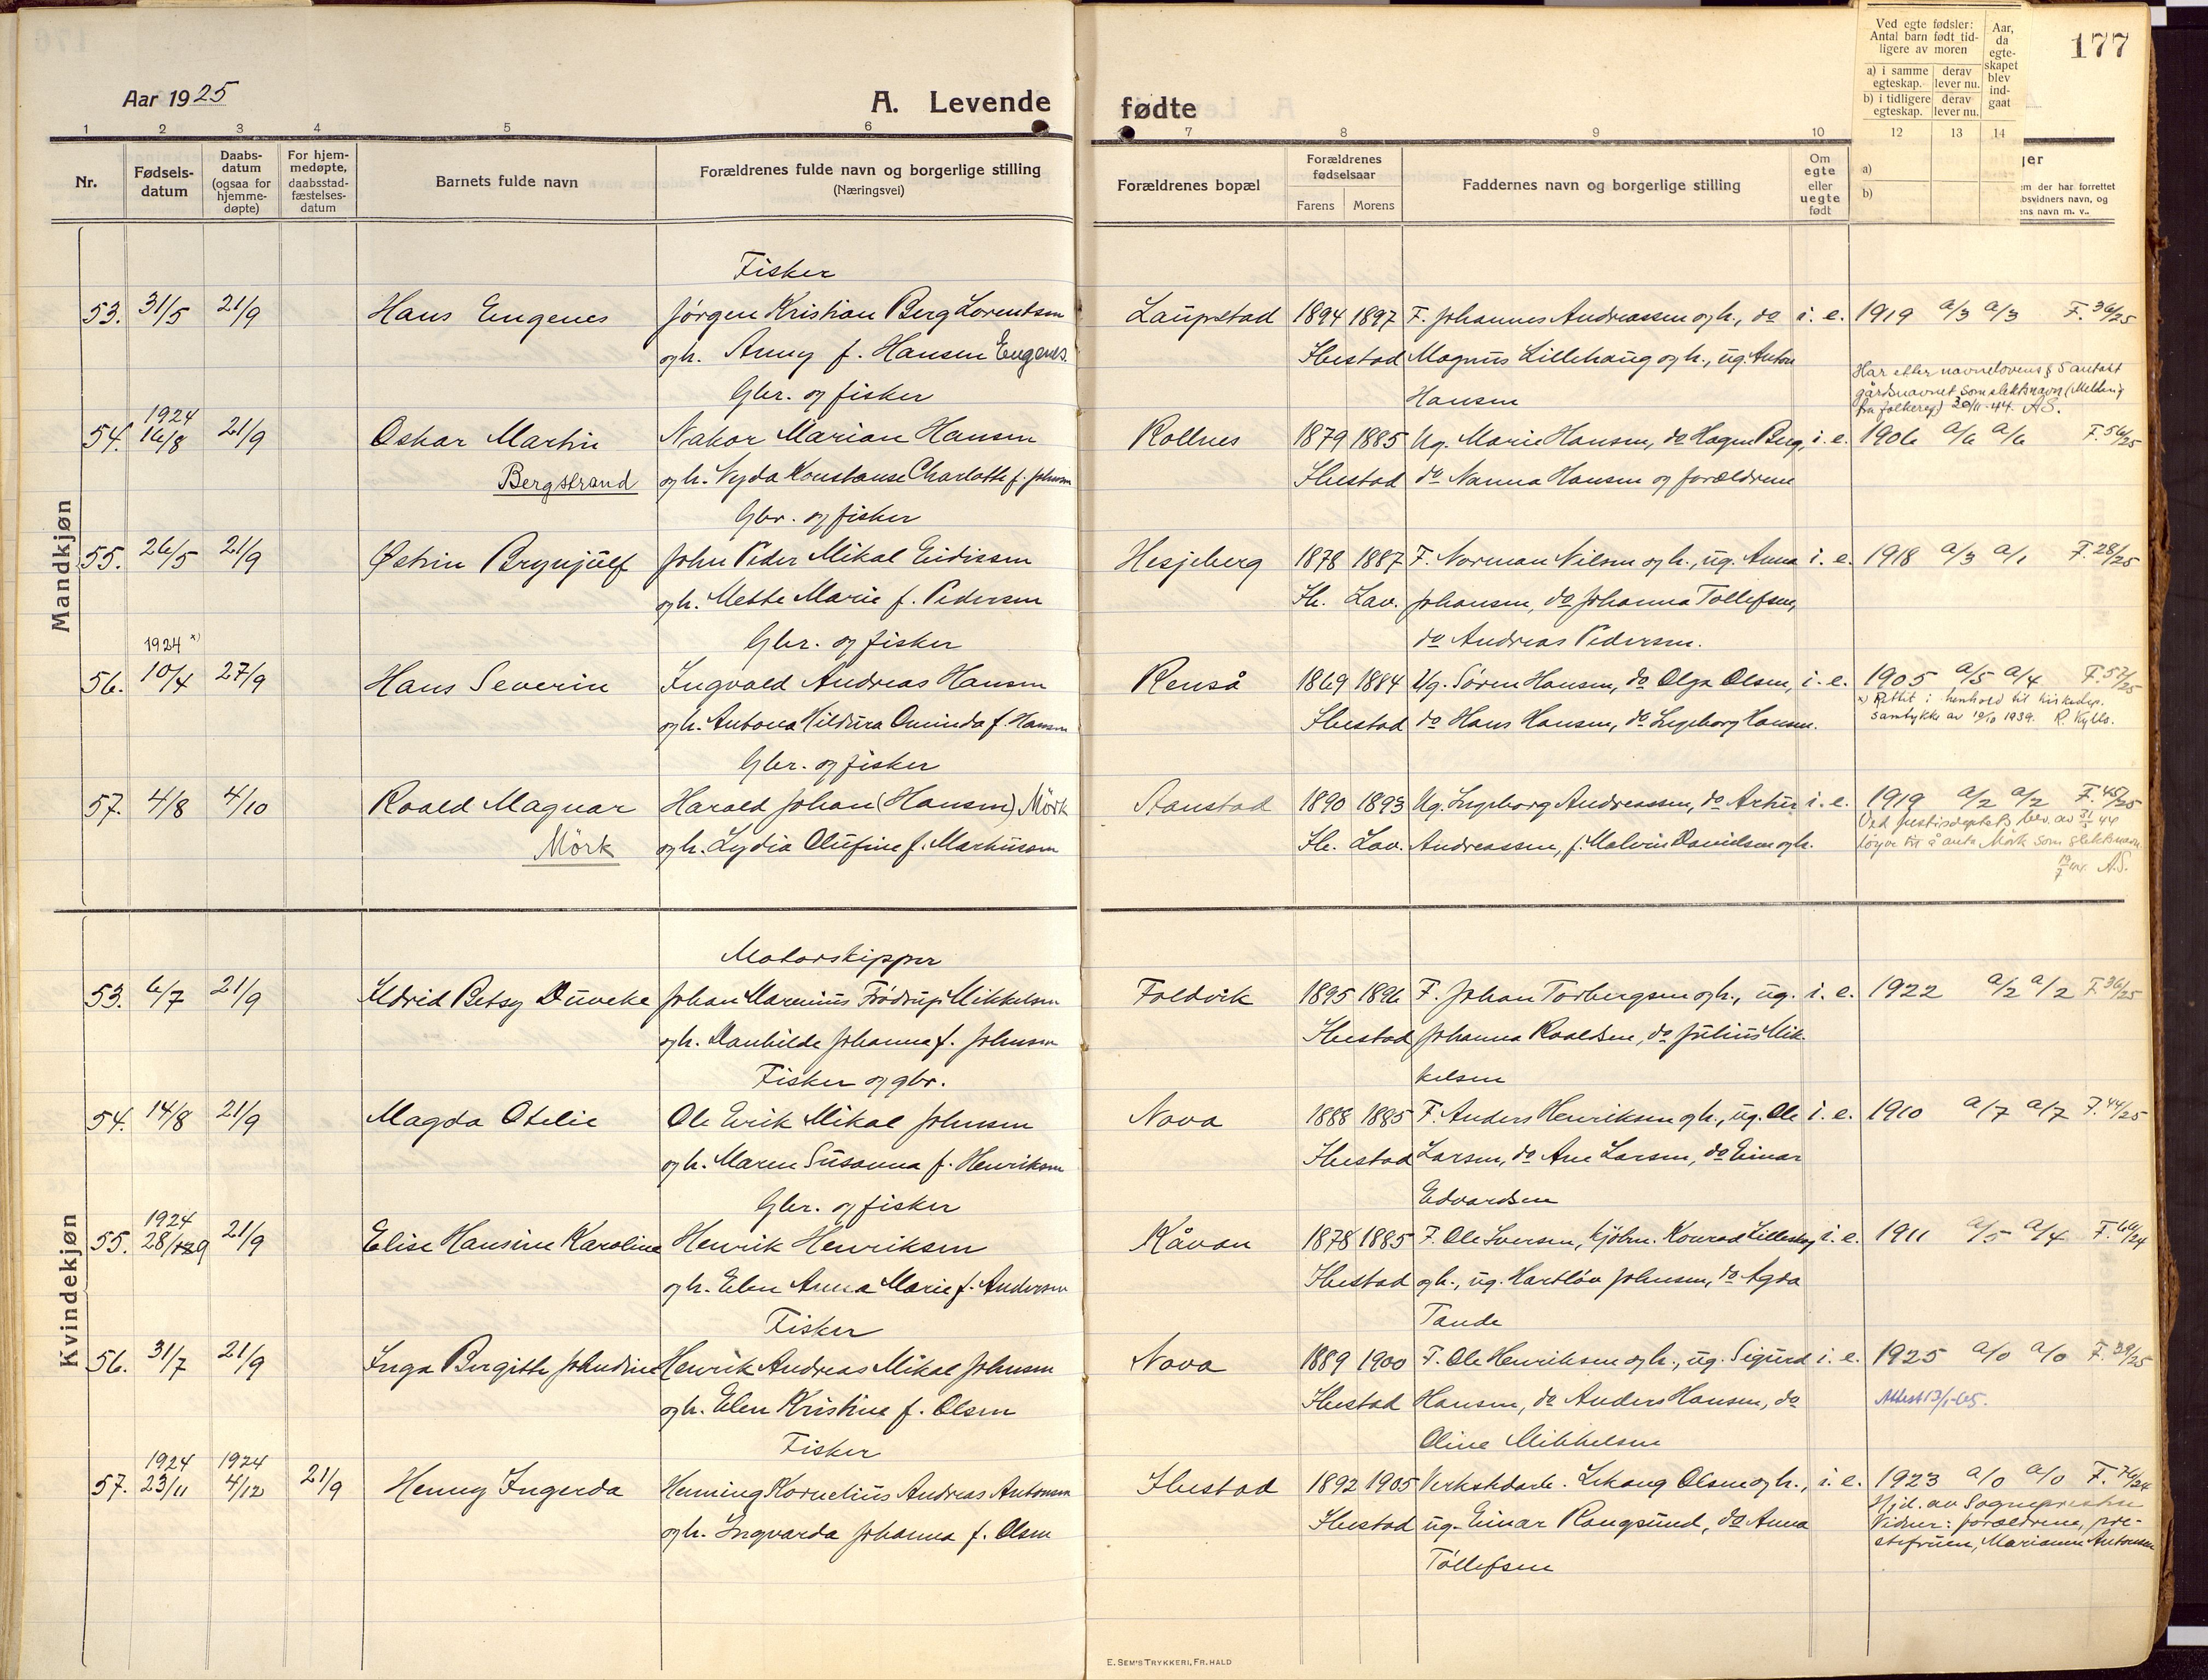 177
Aar 1925
A. Levende fødte
1 2 3 4 5 6 7 8 9 10 12 13 14
Nr.
Fødsels-datum
Daabs-datum (ogsaa for hjemme-døpte)
For hjem-medøpte, daabsstad-fæstelses-datum
Barnets fulde navn
Forældrenes fulde navn og borgerlige stilling
(Næringsvei)
Forældrenes bopæl
Forældrenes fødselsaar
Farens Morens
Faddernes navn og borgerlige stilling
Om egte eller uegte født
Ved egte fødsler: Antal barn født tid-ligere av moren
a) i samme egteskap. derav lever nu.
b) i tidligere egteskap. derav lever nu.
Aar, da egte-skapet blev ind-gaat
a)
b)
Mandkjøn
Fisker
53. 31/5 21/9 Hans Engenes Jørgen Kristian Berg Lorentsen Laupstad 1894 1897 F. Johannes Andreassen og h., do i. e. 1919 a/3 a/3 F. 36/25
og h. Anny f. Hansen Engenes. Ibestad Magnus Lillehaug og h., ug. Anton
Gbr. og fisker Hansen
Har etter navnelovens § 5 antatt
gårdsnavnet som slektsnavn (Melding
fra folkereg) 30/11-44. AS.
1924
54. 16/8 21/9 Oskar Martin Nakor Marian Hansen Rollnes 1879 1885 Ug. Marie Hansen, do Hagen Berg, i. e. 1906 a/6 a/6 F. 56/25
Bergstrand og h. Nyda Konstanse Charlotte f. Johnsen Ibestad do Nanna Hansen og forældrene
Gbr. og fisker
55. 26/5 21/9 Østein Brynjulf John Peder Mikal Eidissen Hesjeberg 1878 1887 F. Norman Nilsen og h., ug. Anna i. e. 1918 a/3 a/1 F. 28/25
og h. Mette Marie f. Pedersen Ib. Lav. Johansen, do Johanna Tollefsen,
Gbr. og fisker do Andreas Pedersen.
1924 x)
56. 10/4 27/9 Hans Severin Ingvald Andreas Hansen Renså 1869 1884 Ug. Søren Hansen, do Olga Olsen, i. e. 1905 a/5 a/4 F. 57/25
og h. Antona Hildura Ominda f. Hansen Ibestad do Hans Hansen, do Ingeborg Hansen.
x) Rettet i henhold til kirkedep.
samtykke av 19/10 1939.
Gbr. og fisker
57. 4/8 4/10 Roald Magnar Harald Johan (Hansen) Mörk Stanstad 1890 1893 Ug. Ingeborg Andreassen, do Artur i. e. 1919 a/2 a/2 F. 45/25
Mörk og h. Lydia Olufine f. Markussen Ib. Lav. Andreassen, f. Malvin Danielsen og h.
Ved justisdeptets bev. av 31/3 44
løyve til å anta Mörk som slektsnavn
A.S.
Kvindekjøn
Motorskipper
53. 6/7 21/9 Ildrid Betsy Duveke Johan Marenius Frödrup Mikkelsen Foldvik 1895 1896 F. Johan Torbergsen og h., ug. i. e. 1922 a/2 a/2 F. 36/25
og h. Danhilde Johanna f. Johnsen Ibestad Johanna Roaldsen, do Julius Mik-
Fisker og gbr. kelsen
54. 14/8 21/9 Magda Otelie Ole Erik Mikal Johnsen Nova 1888 1885 F. Anders Henriksen og h., ug. Ole i. e. 1910 a/7 a/7 F. 44/25
og h. Maren Susanna f. Henriksen Ibestad Larsen, do Ane Larsen, do Einar
Gbr. og fisker Edvardsen
1924
55. 28/9 21/9 Elise Hansine Karoline Henrik Henriksen Kåvan 1878 1885 F. Ole Iversen, kjøbm. Konrad Lilleskog i. e. 1911 a/5 a/4 F. 60/24
og h. Elen Anna Marie f. Andersen Ibestad og h., ug. Hartløv Johnsen, do Agda
Fisker Tande
56. 31/7 21/9 Inga Birgitte Johndine Henrik Andreas Mikal Johnsen Nova 1889 1900 F. Ole Henriksen og h., ug. Sigurd i. e. 1925 a/0 a/0 F. 39/25
og h. Elen Kristine f. Olsen Ibestad Hansen, do Anders Hansen, do Attest 13/1-65.
Fisker Oline Mikkelsen
1924 1924
57. 23/11 4/12 21/9 Henny Ingerda Henning Kornelius Andreas Antonsen Ibestad 1892 1905 Verkstdarb. Lekang Olsen og h., i. e. 1923 a/0 a/0 F. 76/24
og h. Ingvarda Johanna f. Olsen Ibestad ug. Einar Rangsund, do Anna
Tollefsen
Hjd. av Sognepresten
Vidner: forældrene, pre-
stefruen, Marianne Antonsen
E. SEM'S TRYKKERI, FR.HALD